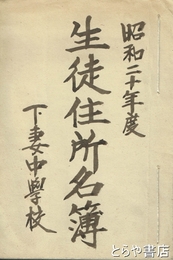 昭和二十年度
生徒住所名簿
下妻中學校
© とらや書店